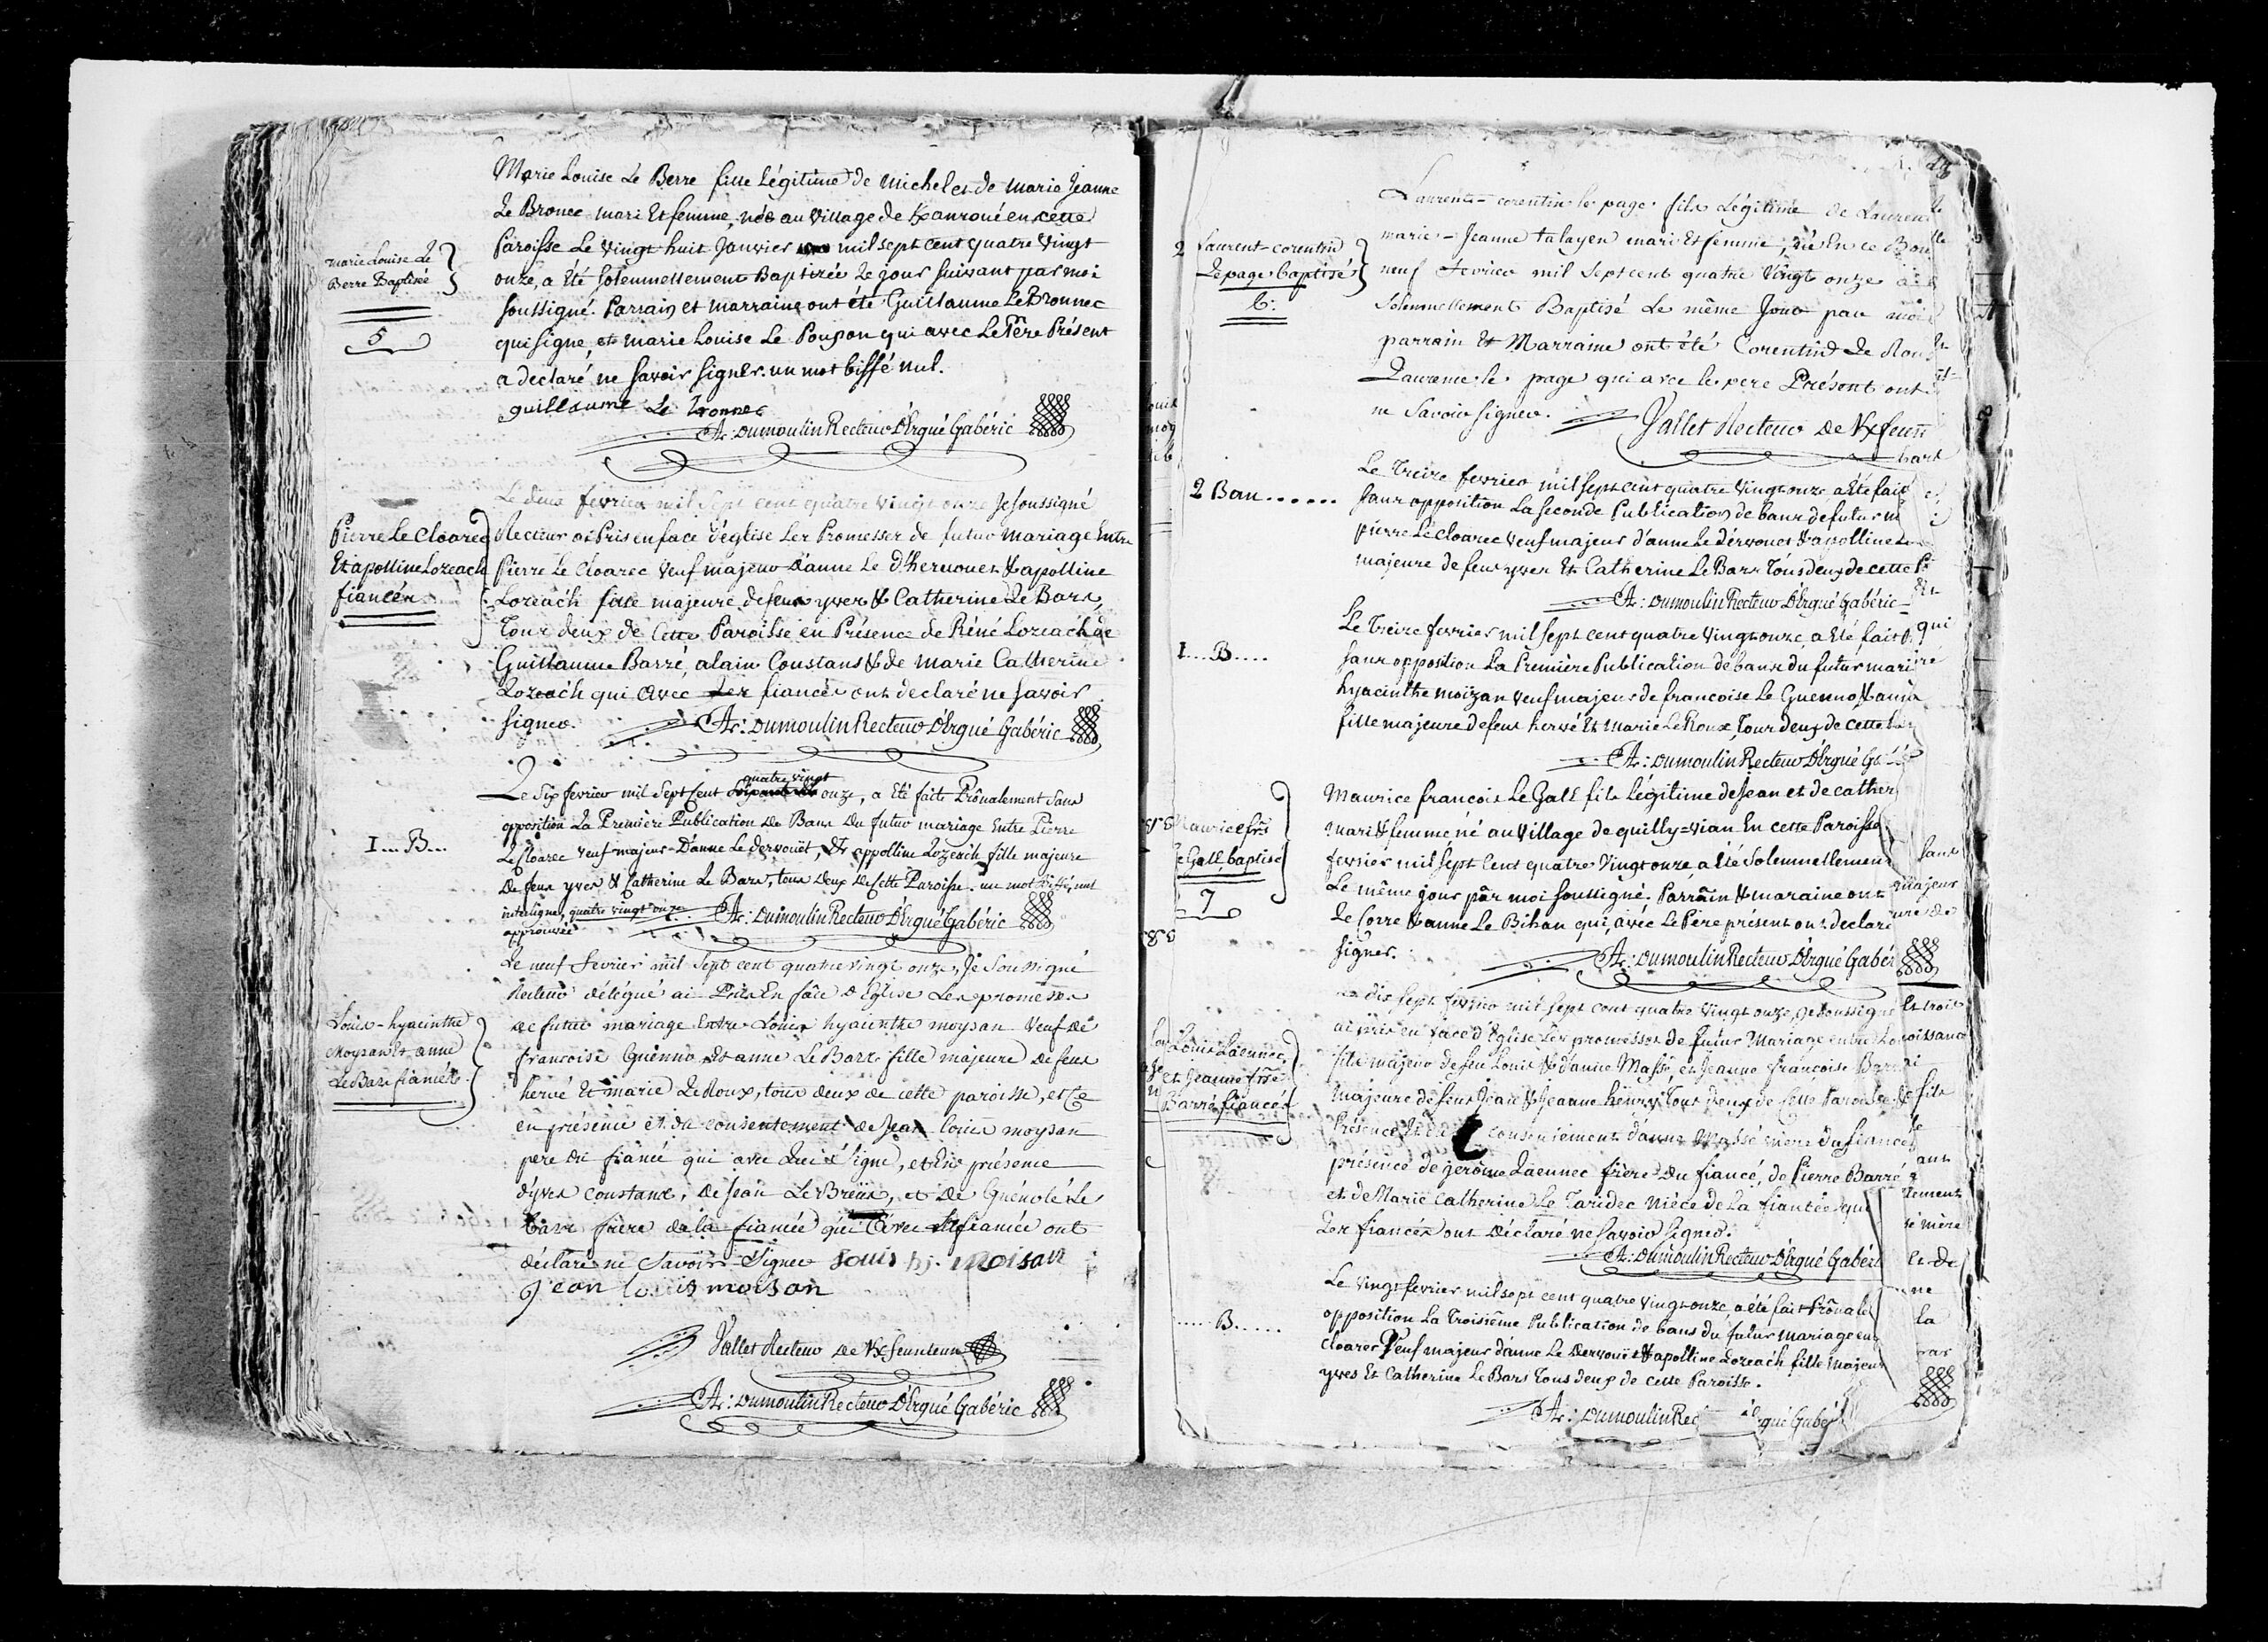 Marie Louise Le Berre fille Légitime de michel et de marie Jeanne
Le Bronec mari Et femme, née au village de en cette
Paroisse Le vingt huit Janvier mil sept cent quatre vingt
marie Louise Le
Berre Baptisée
onze, a Eté solemnellement Baptizée Le jour suivant par moi
soussigné. Parrain et marraine ont été Guillaume Le Bronnec
5
qui signe, et marie Louise Le Poupon qui avec Le Père Présent
a declaré ne savoir signer. un mot biffé nul.
guillaume Le bronnec
A: Dumoulin Recteur D'Ergué Gabéric
Le deux fevrier mil sept cent quatre vingt onze Je soussigné
Pierre Le Cloarec
Et apolline Lozeach
fiancés
Recteur ai Pris en face d'église Les Promesses de futur mariage Entre
Pierre Le Cloarec veuf majeur d'anne Le d'hervouet & apolline
Lozeach fille majeure de feux yves & Catherine Le Bars,
Tous deux de Cette Paroisse en Présence de Réné Lozeach de
Guillaume Barré, alain Constans & de marie Catherine
Lozeach qui avec Les fiancés ont declaré ne savoir
signer. A: Dumoulin Recteur D'Ergué Gabéric
quatre vingt
Le six fevrier mil sept Cent onze, a Eté faite Prônalement sans
opposition La Premiére Publication de Bans du futur mariage Entre Pierre
1... B...
Le Cloarec veuf majeur D'anne Le dervouët, Et appolline Lozeach fille majeure
De feux yves & Catherine Le Bars, tous deux de Cette Paroisse. un mot biffé, nul
interligne, quatre vingt onze A: Dumoulin Recteur D'Ergué Gabéric
approuvée
Le neuf fevrier mil sept cent quatre vingt onze, Je soussigné
Recteur délégué ai Pris En face d'Eglise Les promesses
Louis-hyacinthe
Moysan Et anne
Le Bars fiancés
de futur mariage Entre Louis hyacinthe moysan veuf de
francoise Guenno Et anne Le Bars fille majeure de feux
hervé Et marie Le Roux, tous deux de cette paroisse, et Ce
en présence et du consentement de Jean louis moysan
pere du fiancé qui avec Lui signe, et En présence
d'yves constans, de Jean Le Breüs, et de Guénolé Le
bars frere de la fiancée qui avec la fiancée ont
déclaré ne savoir signer Louis hj. moisan
jean louis moisan
Vallet Recteur de
A: Dumoulin Recteur D'Ergué Gabéric
Laurent-corentin le page fils Légitime de Laurent
2 Laurent-corentin
Le page baptisé
6:
marie-Jeanne talayen mari Et femme, né En ce Bour
neuf fevrier mil sept cent quatre vingt onze a
solemnellement Baptisé Le même Jour par moi
parrain Et Marraine ont été Corentin Le
Laurence le page qui avec le pere Présent ont
ne savoir signer. Vallet Recteur de
2 Ban......
Le treize fevrier mil sept cent quatre vingt onze, a Eté fait
sans opposition La seconde Publication de bans de futur m
pierre Le cloarec veuf majeur d'anne Le dérvouet & apolline
majeure de feux yves Et Catherine Le Bars Tous deux de cette P
A: Dumoulin Recteur D'Ergué Gabéric
1... B.....
Le treize fevrier mil sept cent quatre vingt onze, a Eté fait
sans opposition La Premiére Publication de bans du futur mari
hyacinthe moïzan veuf majeur de francoise Le Guenno & anne
fille majeure de feux hervé Et marie Le Roux, Tous deux de cette
A: Dumoulin Recteur D'Ergué
Maurice frs
Le Gall, baptisé
7
Maurice francois Le Gall fils Légitime de Jean et de cather
mari & femme né au Village de quilly=vian En cette Paroisse
fevrier mil sept Cent quatre vingt onze, a Eté Solemnellement
Le même jour pâr moi soussigné. Parrain & maraine ont
Le Corre & anne Le Bihan qui, avec Le Père présent ont declaré
signer.
A: Dumoulin Recteur D'Ergué Gabér
dix sept fevrier mil sept cent quatre vingt onze, Je soussigné
Louis Laennec,
et Jeanne frse
Barré fiancés
ai pris en face d'Eglise Les promesses de futur Mariage entre
fils majeur de feu Louis & d'anne Massé, et Jeanne françoise Barré
majeure de feux Jean & Jeanne henry Tous deux de Cette Paroisse
Présence Et du consentement d'anne Massé mere du fiancé
présence de jerôme Laennec frere du fiancé, de Pierre Barré
et de Marie Catherine Le Taridec Nièce de La fiancée qui
Les fiancés ont déclaré ne savoir signer.
A: Dumoulin Recteur D'Ergué Gabéri
Le vingt fevrier mil sept cent quatre vingt onze, a été fait Prônale
...... B......
opposition La troisiême Publication de bans du futur mariage en
Cloarec Veuf majeur d'anne Le Dervouet & apolline Lozeach fille majeure
yves Et Catherine Le Bars Tous deux de cette Paroisse.
A: Dumoulin Rec gué Gabér